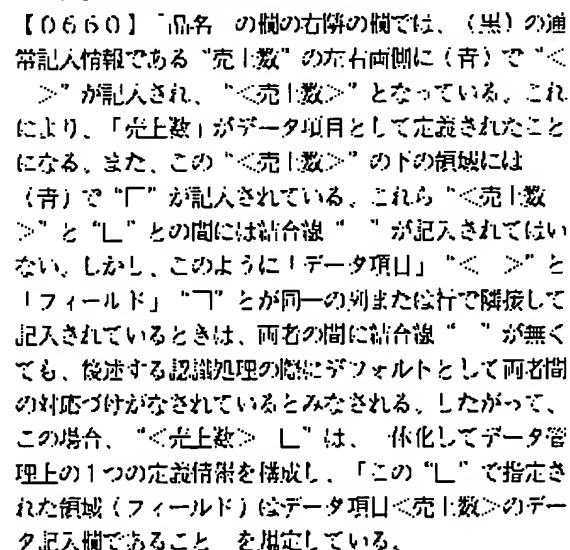 【0660】「品名」の欄の右隣の欄では、(黒)の通
常記入情報である“売上数”の左右両側に(青)で“<
>”が記入され、“<売上数>”となっている。これ
により、「売上数」がデータ項目として定義されたこと
になる。また、この“<売上数>”の下の領域には
(青)で“厂”が記入されている。これら“<売上数
>”と“∟”との間には結合線“ ”が記入されてはい
ない。しかし、このように「データ項目」“< >”と
「フィールド」“㇕”とが同一の列または行で隣接して
記入されているときは、両者の間に結合線“ ”が無く
ても、後述する認識処理の際にデフォルトとして両者間
の対応づけがなされているとみなされる。したがって、
この場合、“<売上数> ∟”は、一体化してデータ管
理上の1つの定義情報を構成し、「この“∟”で指定さ
れた領域(フィールド)はデータ項目<売上数>のデー
タ記入欄であること」を指定している。